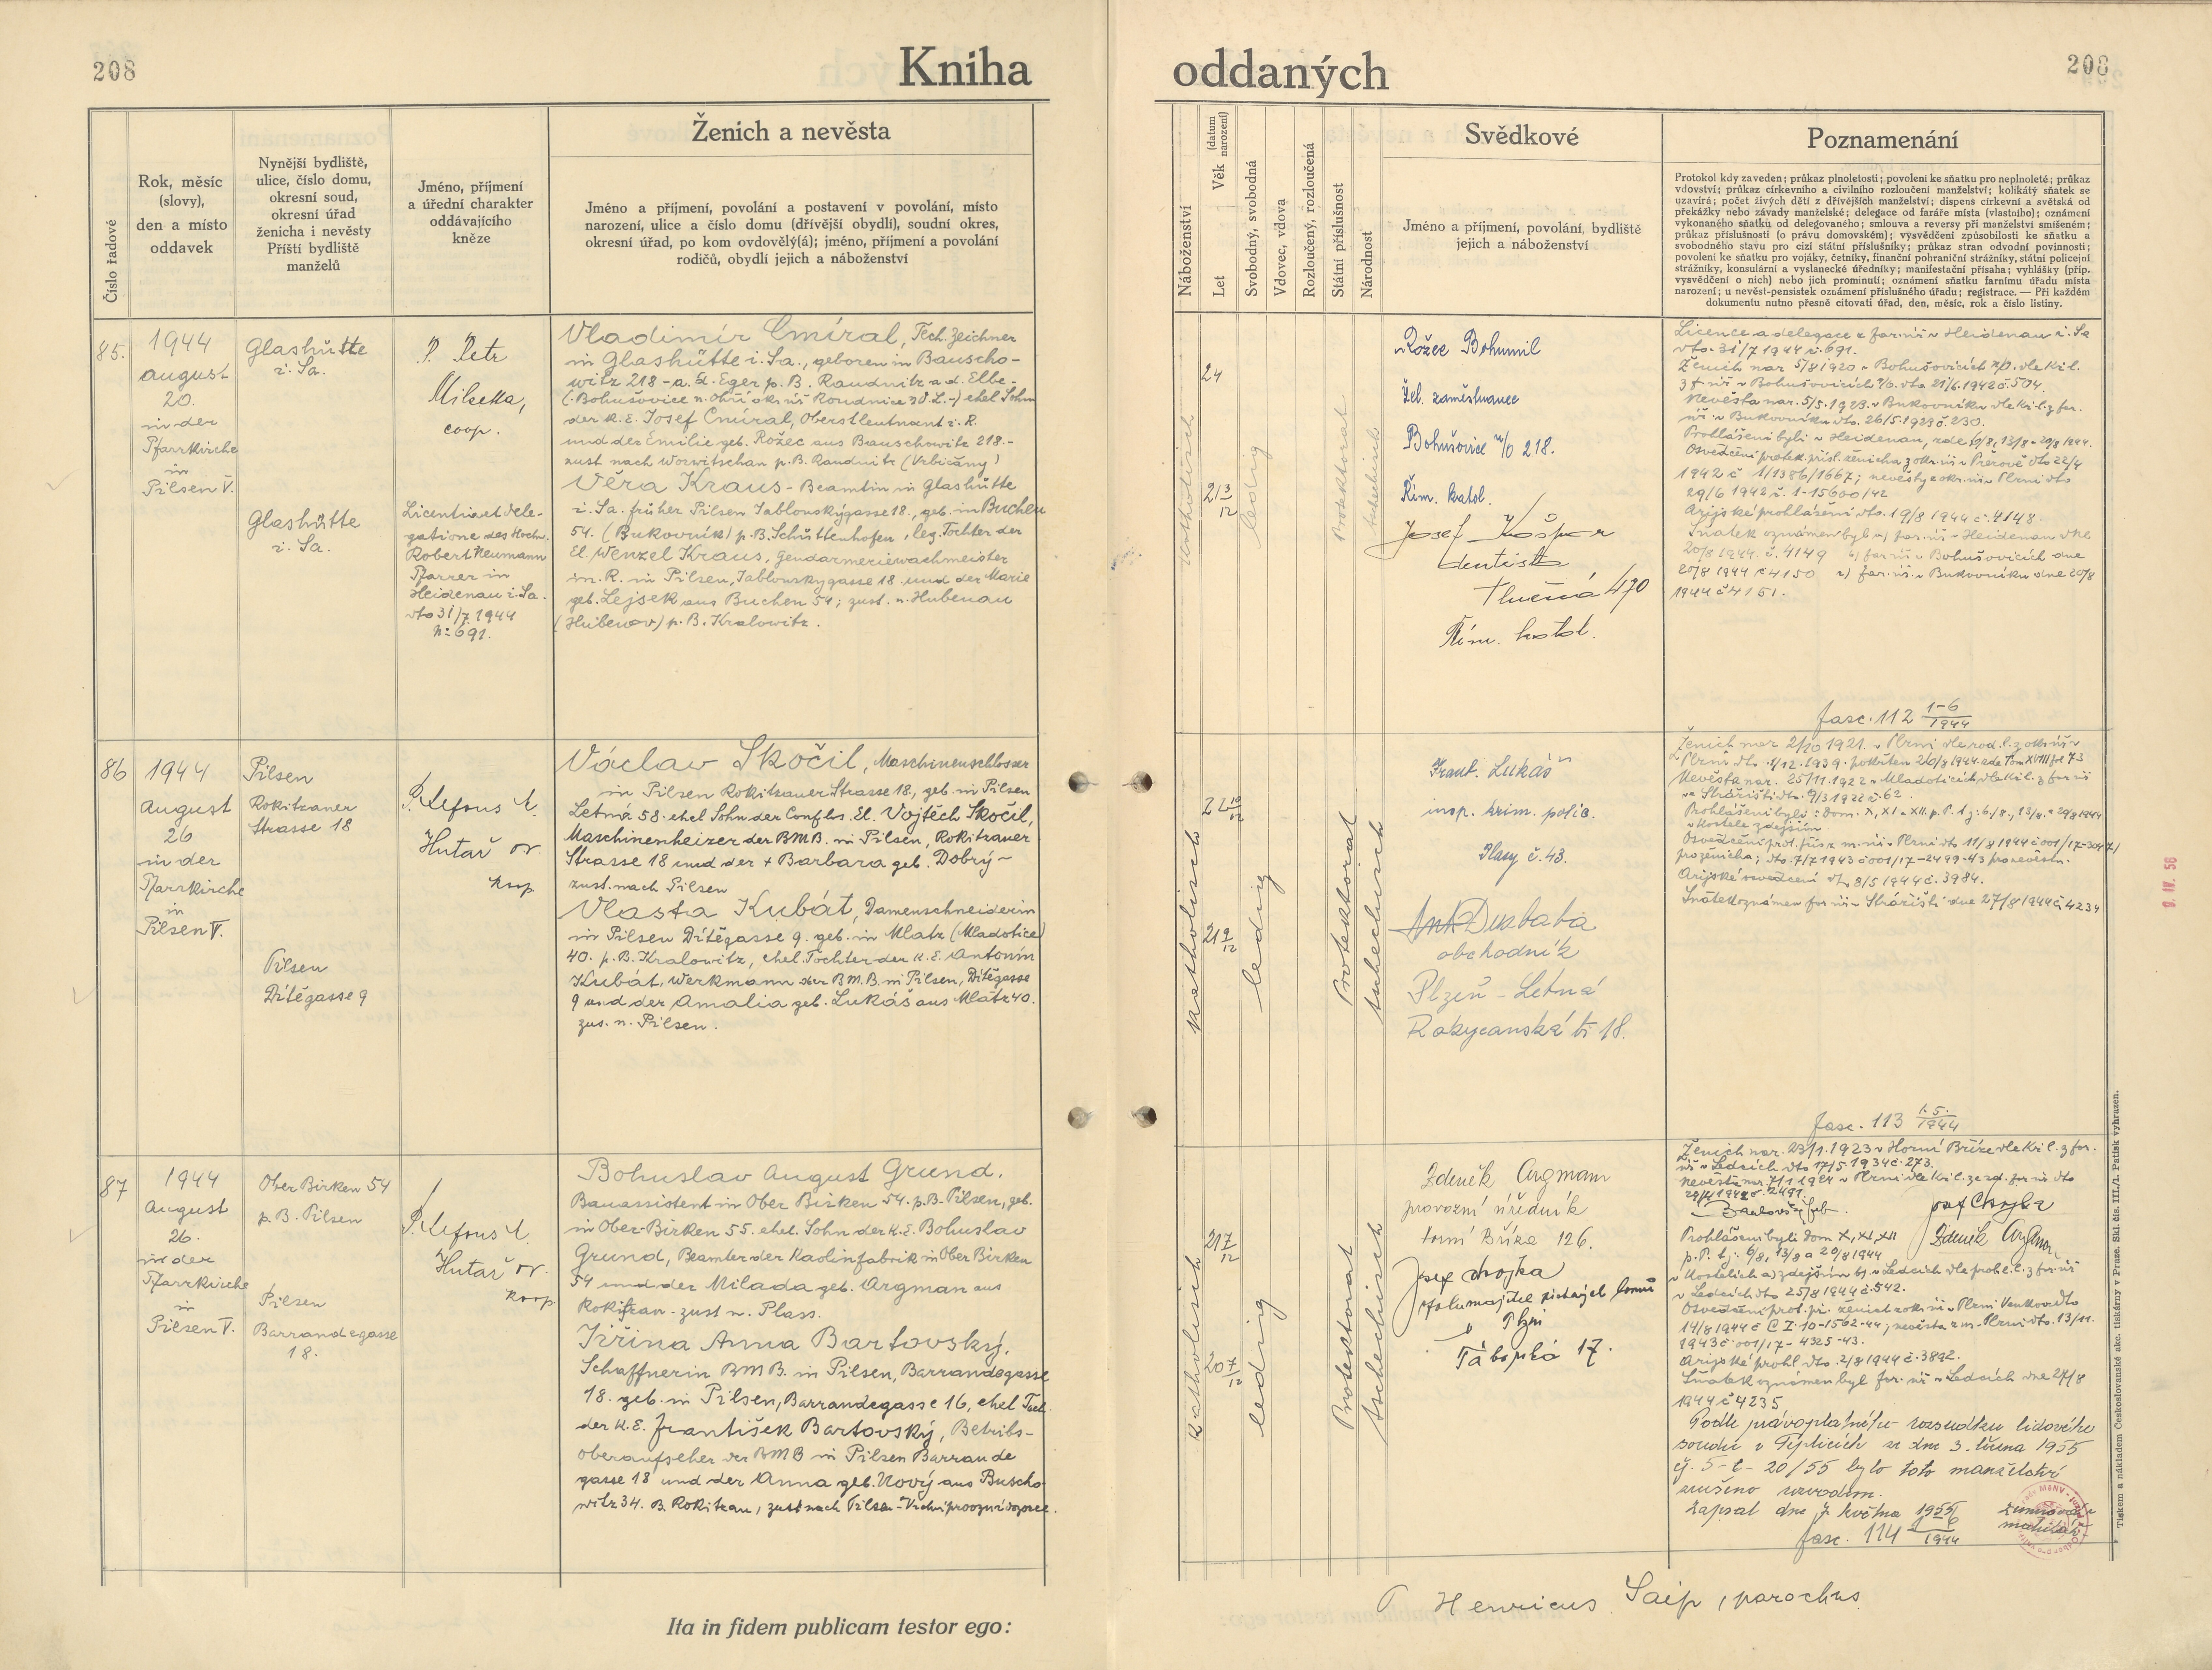 208
Kniha
oddaných
208
Číslo řadové
Rok, měsíc
(slovy),
den a místo
oddavek
Nynější bydliště,
ulice, číslo domu,
okresní soud,
okresní úřad
ženicha i nevěsty
Příští bydliště
manželů
Jméno, příjmení
a úřední charakter
oddávajícího
kněze
Ženich a nevěsta
Jméno a příjmení, povolání a postavení v povolání, místo
narození, ulice a číslo domu (dřívější obydlí), soudní okres,
okresní úřad, po kom ovdovělý(á); jméno, příjmení a povolání
rodičů, obydlí jejich a náboženství
Náboženství
Let
Věk
(datum narození)
Svobodný, svobodná
Vdovec, vdova
Rozloučený, rozloučená
Státní příslušnost
Národnost
Svědkové
Jméno a příjmení, povolání, bydliště
jejich a náboženství
Poznamenání
Protokol kdy zaveden; průkaz plnoletosti; povolení ke sňatku pro neplnoleté; průkaz
vdovství; průkaz církevního a civilního rozloučení manželství; kolikátý sňatek se
uzavírá; počet živých dětí z dřívějších manželství; dispens církevní a světská od
překážky nebo závady manželské; delegace od faráře místa (vlastního); oznámení
vykonaného sňatku od delegovaného; smlouva a reversy při manželství smíšeném;
průkaz příslušnosti (o právu domovském); vysvědčení způsobilosti ke sňatku a
svobodného stavu pro cizí státní příslušníky; průkaz stran odvodní povinnosti;
povolení ke sňatku pro vojáky, četníky, finanční pohraniční strážníky, státní policejní
strážníky, konsulární a vyslanecké úředníky; manifestační přísaha; vyhlášky (příp.
vysvědčení o nich) nebo jich prominutí; oznámení sňatku farnímu úřadu místa
narození; u nevěst-pensistek oznámení příslušného úřadu; registrace. — Při každém
dokumentu nutno přesně citovati úřad, den, měsíc, rok a číslo listiny.
85.
1944
august
20.
in der
Pfarrkirche
in
Pilsen V.
Glashütte
i. Sa.
Glashütte
i. Sa.
P. Petr
Milietta,
coop.
Licentia et dele-
gatione des Hochw.
Robert Neumann
Pfarrer in
Heidenau i. Sa.
dto 31/7 1944
N: 691.
Vladimír Cmíral, Tech. Zeichner
in Glashütte i. Sa., geboren in Bauscho-
witz 218 - a. d. Eger p. B. Raudnitz a. d. Elbe -
(Bohušovice n. Ohří okr. úř. Roudnice n. L.-) ehel Sohn
der k. E. Josef Cmíral, Oberstleutnant i. R.
und der Emilie geb. Rožec aus Bauschowitz 218.-
zust nach Worwitschan p. B. Raudnitz (Vrbičany)
Věra Kraus - Beamtin in Glashütte
i. Sa. früher Pilsen Jablonskýgasse 18., geb. in Buchen
54. (Bukovník) p. B. Schüttenhofen, leg. Tochter der
El. Wenzel Kraus, Gendarmeriewachmeister
in. R. in Pilsen, Jablonskygasse 18 und der Marie
geb. Lejsek aus Buchen 54; zust. n. Hubenau
(Hubenov) p. B. Kralowitz.
24
21 3/12
katholisch
ledig
Protektorat
tschechisch
Rožec Bohumil
Žel. zaměstnanec
Bohušovice n/O 218.
Řím. katol.
Josef Kašpar
dentista
Tlučná 470
Řím. katol.
Licence a delegace z far. úř. v Heidenau i. Sa
dto. 31/7 1944 č. 691.
Ženich nar 5/8 1920 v Bohušovicích n/O. dle kř. l.
z f. úř. v Bohušovicích n/O. dto 21/6. 1942 č. 504.
Nevěsta nar. 5/5. 1923. v Bukovníku dle kř. l. z far.
úř. v Bukovníku dto. 26/5. 1923 č. 230.
Prohlášeni byli v Heidenau, zde 6/8, 13/8 - 20/8 1944.
Osvědčení protek. přísl. ženicha z okr. úř. v Přerově dto 22/4
1942 č 1/1386/1667; nevěsty z okr. úř. v Plzni dto
29/6 1942 č. 1-15600/42
Arijské prohlášení dto. 19/8 1944 č. 4148.
Sňatek oznámen byl a) far. úř. v Heidenau dne
20/8 1944. č. 4149 b) far. úř. v Bohušovicích dne
20/8 1944 č 4150 c) far. úř. v Bukovníku dne 20/8
1944 č 4151.
fasc. 112 1-6/1944
86
1944
August
26
in der
Pfarrkirche
in
Pilsen V.
Pilsen
Rokitzaner
Strasse 18
Pilsen
Dítěgasse 9
P. Alfons M.
Hutař
koop
Václav Skočil, Maschinenschlosser
in Pilsen Rokitzauer Strasse 18, geb. in Pilsen
Letná 58. ehel Sohn der Confls. El. Vojtěch Skočil,
Maschinenheizer der BMB. in Pilsen, Rokitzaner
Strasse 18 und der + Barbara geb. Dobrý -
zust. nach Pilsen
Vlasta Kubát, Damenschneiderin
in Pilsen Dítěgasse 9. geb. in Mlatz (Mladotice)
40. p. B. Kralowitz, ehel. Tochter der k. E. Antonín
Kubát, Werkmann der B.M.B. in Pilsen, Dítěgasse
9 und der Amalia geb. Lukáš aus Mlatz 40.
zus. n. Pilsen.
22 10/12
21 9/12
katholisch
ledig
Protektorat
tschechisch
Frant. Lukáš
insp. krim. policie.
Plasy č. 43.
obchodník
Plzeň - Letná
Rokycanská tř. 18.
Ženich nar 2/10 1921. v Plzni dle rod. l. z okr. úř. v
Nevěsta nar. 25/11. 1922 v Mladoticích, dle kř. l. z far. úř
Arijské osvědčení dto 8/5 1944 č. 3984.
Sňatek oznámen far. úř. v Strážišti dne 27/8 1944 č 4234
fasc. 113 1-5./1944
9. IV. 56
87
1944
August
26.
in der
Pfarrkirche
in
Pilsen V.
Ober Birken 54
p. B. Pilsen
Pilsen
Barrandegasse
18.
P. Alfons M.
Hutař
koop
Bohuslav August Grund.
Bauassistent in Ober Birken 54. p. B. Pilsen, geb.
in Ober-Birken 55. ehel. Sohn der k. E. Bohuslav
Grund, Beamter der Kaolinfabrik in Ober Birken
54 und der Milada geb. Argman aus
Rokitzan - zust n. Plass.
Jiřina Anna Bartovský.
Schaffnerin BMB. in Pilsen, Barrandegasse
18. geb. in Pilsen, Barrandegasse 16, ehel Toch.
der k. E. František Bartovský, Betribs-
oberaufseher der BMB in Pilsen Barrande
gasse 18 und der Anna geb. Nový aus Buscho-
witz 34. B. Rokitzan, zust nach Pilsen - Vrchní provozní dozorce.
21 7/12
20 7/12
katholisch
ledig
Protektorat
tschechisch
Zdeněk Argman
provozní úředník
Horní Bříza 126.
Josef Chojka
v Plzni
Táborská 17.
Ženich nar. 23/1. 1923 v Horní Bříze dle kř. l. z far.
úř. v Ledcích dto 17/5 1934 č. 273.
Josef Chojka
Zdeněk Argman
Prohlášeni byli dom X, XI, XII
p. P. t. j. 6/8, 13/8 a 20/8 1944
v Ledcích dto 25/8 1944 č. 542.
14/8 1944 č C I-10-1562-44; nevěsta z m. Plzni dto. 13/11.
1943 č. 001/17 - 4325-43.
Arijské prohl. dto. 2/8 1944 č. 3892.
Sňatek oznámen byl far. úř. v Ledcích dne 27/8
1944 č 4235
Podle právoplatného rozsudku lidového
soudu v Teplicích ze dne 3. března 1955
čj. 5-C-20/55 bylo toto manželství
zrušeno rozvodem.
Zapsal dne 7. května 1955
fasc. 114 1944
P. Henricus Saip, parochus
Ita in fidem publicam testor ego:
Tiskem a nákladem Československé akc. tiskárny v Praze. Skl. čís. III./2. Patisk vyhrazen.